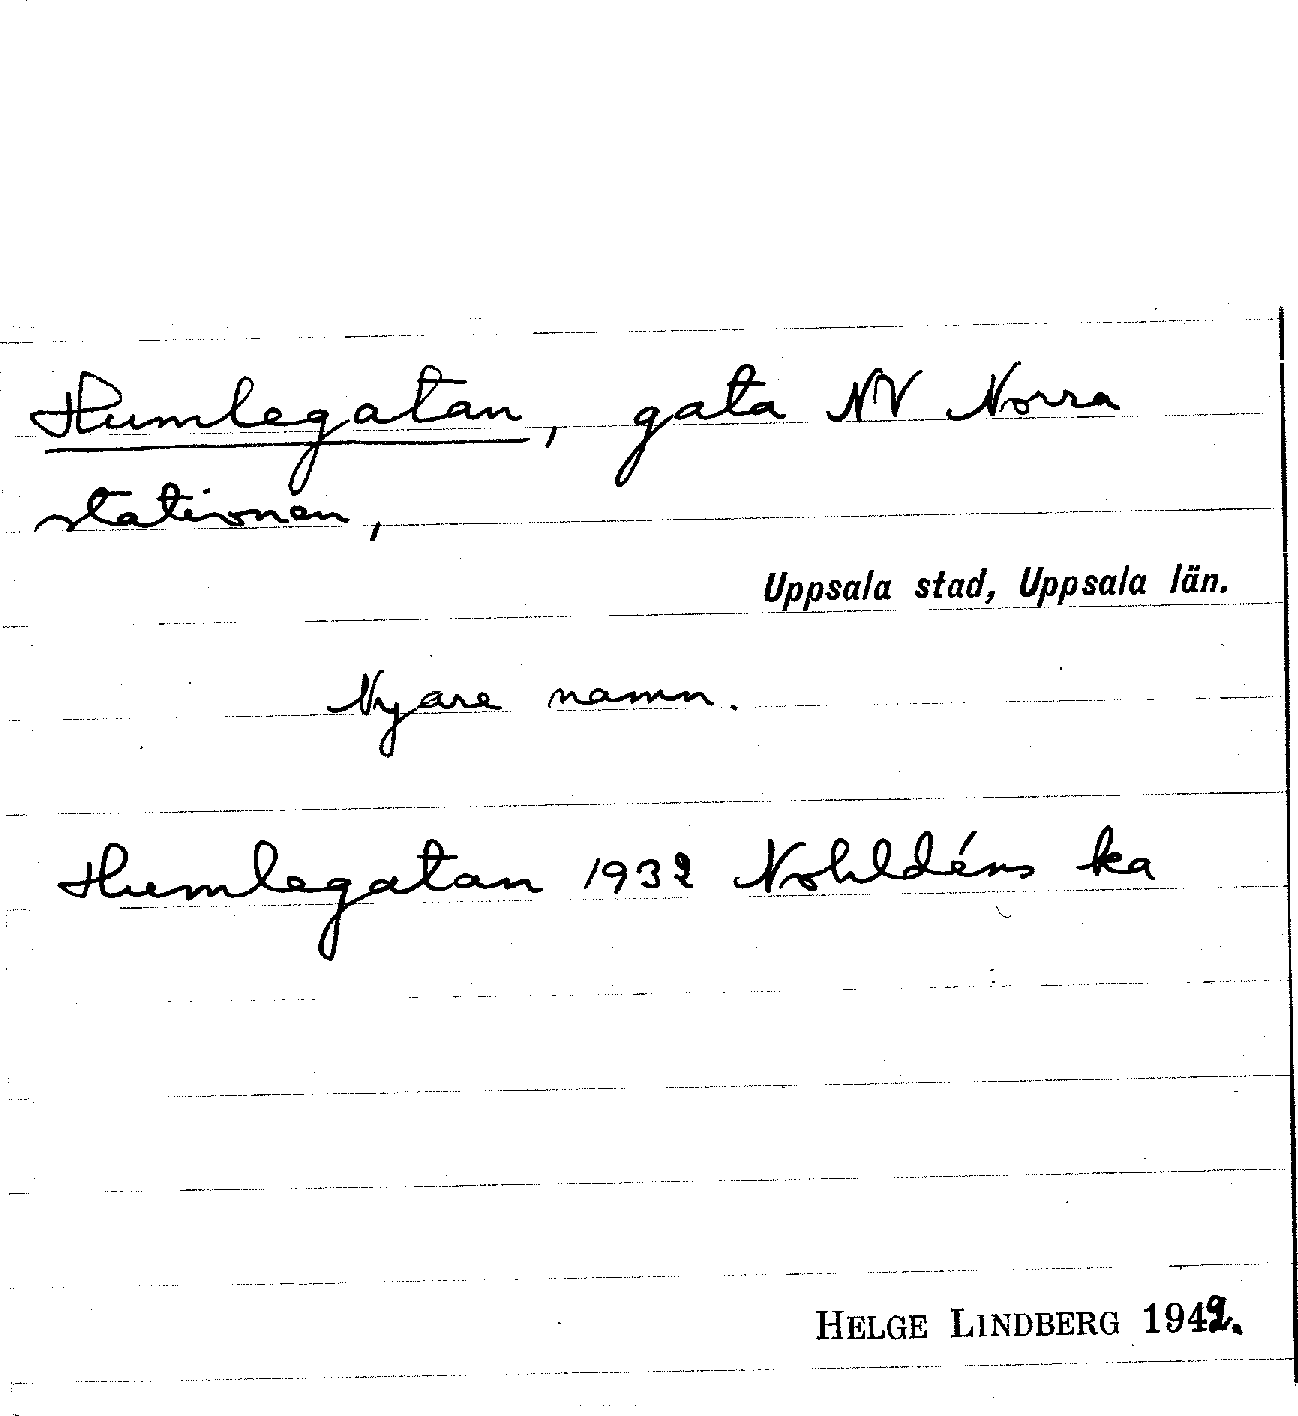 Humlegatan, gata NV Norra
stationen,
Uppsala stad, Uppsala län.
Nyare namn.
Humlegatan 1932 Nohldéns ka
HELGE LINDBERG 1942.